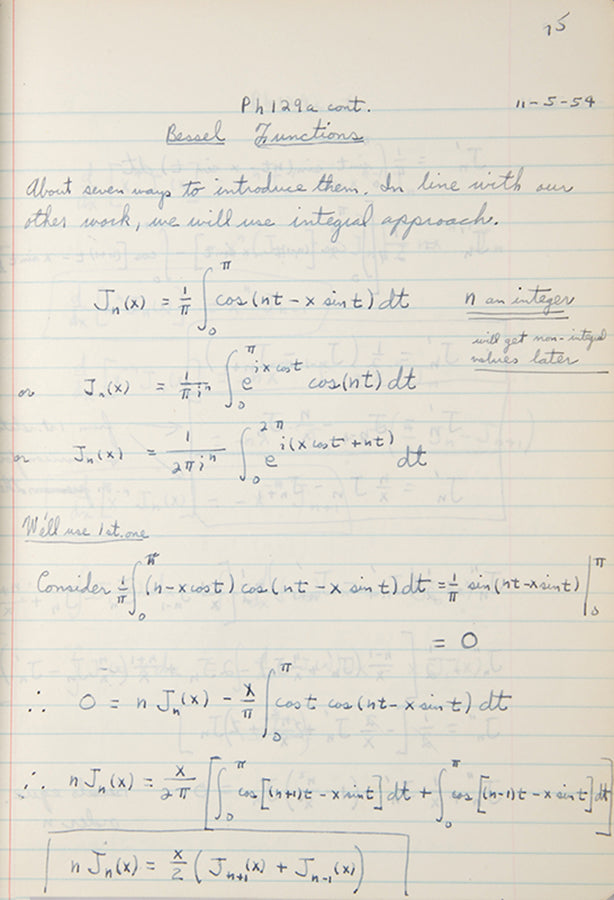 75
Ph 129a cont. 11-5-54
Bessel Functions
About seven ways to introduce them. In line with our
other work, we will use integral approach.
J_n(x) = 1/π ∫_0^π cos(nt − x sin t) dt n an integer
will get non-integral
values later
or J_n(x) = 1/(π i^n) ∫_0^π e^{i x cos t} cos(nt) dt
or J_n(x) = 1/(2π i^n) ∫_0^{2π} e^{i(x cos t + nt)} dt
We'll use 1st. one
Consider 1/π ∫_0^π (n − x cos t) cos(nt − x sin t) dt = 1/π sin(nt − x sin t) |_0^π
= 0
∴ 0 = n J_n(x) − x/π ∫_0^π cos t cos(nt − x sin t) dt
∴ n J_n(x) = x/2π [∫_0^π cos[(n+1)t − x sin t] dt + ∫_0^π cos[(n-1)t − x sin t] dt]
n J_n(x) = x/2 (J_{n+1}(x) + J_{n-1}(x))